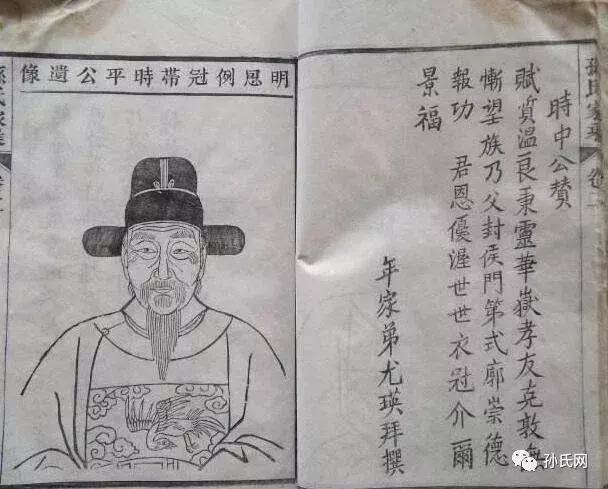 孫氏家乘 卷一
時中公贊
賦質溫良秉靈華嶽孝友克敦
慚望族乃父封侯門第式廓崇德
報功 君恩優渥世世衣冠介爾
景福
年家弟尤瑛拜撰
明恩例冠帶時平公遺像
孫氏家乘
孙氏网